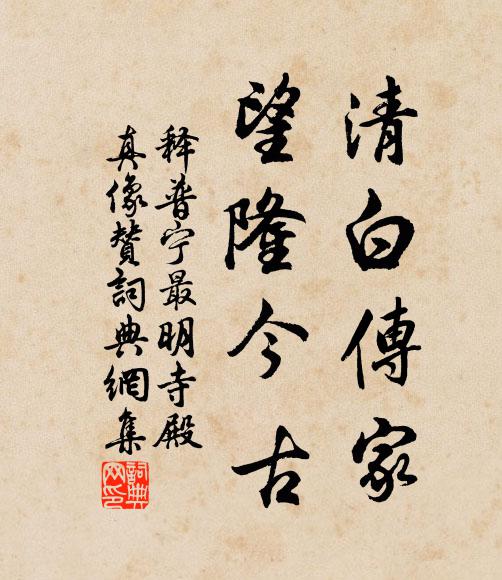 清白傳家
望隆今古
释普宁最明寺殿
真像赞詞典網集
詞典
网印